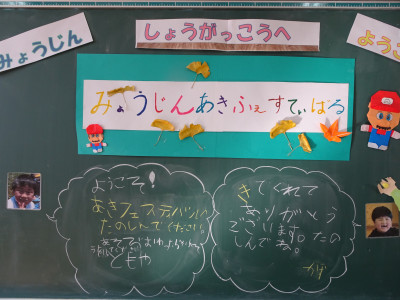 みょうじん
しょうがっこうへ
ようこ
みょうじんあきふぇすてぃばる
ようこそ!
あきフェスティバルに
たのしんでください
ともや
きてくれて
ありがとう
ございます。たの
しんでね。